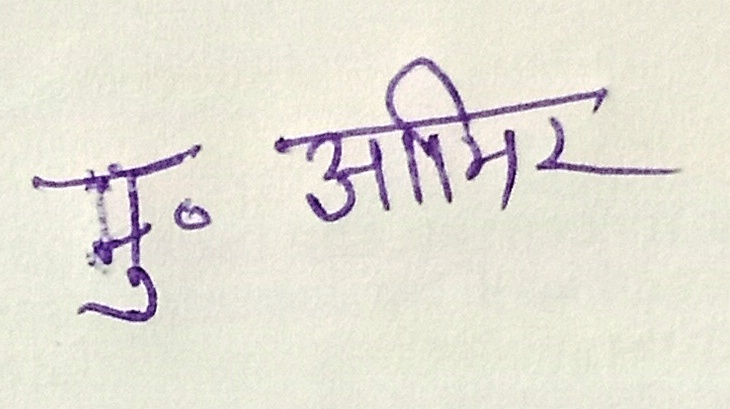 मु० आमिर